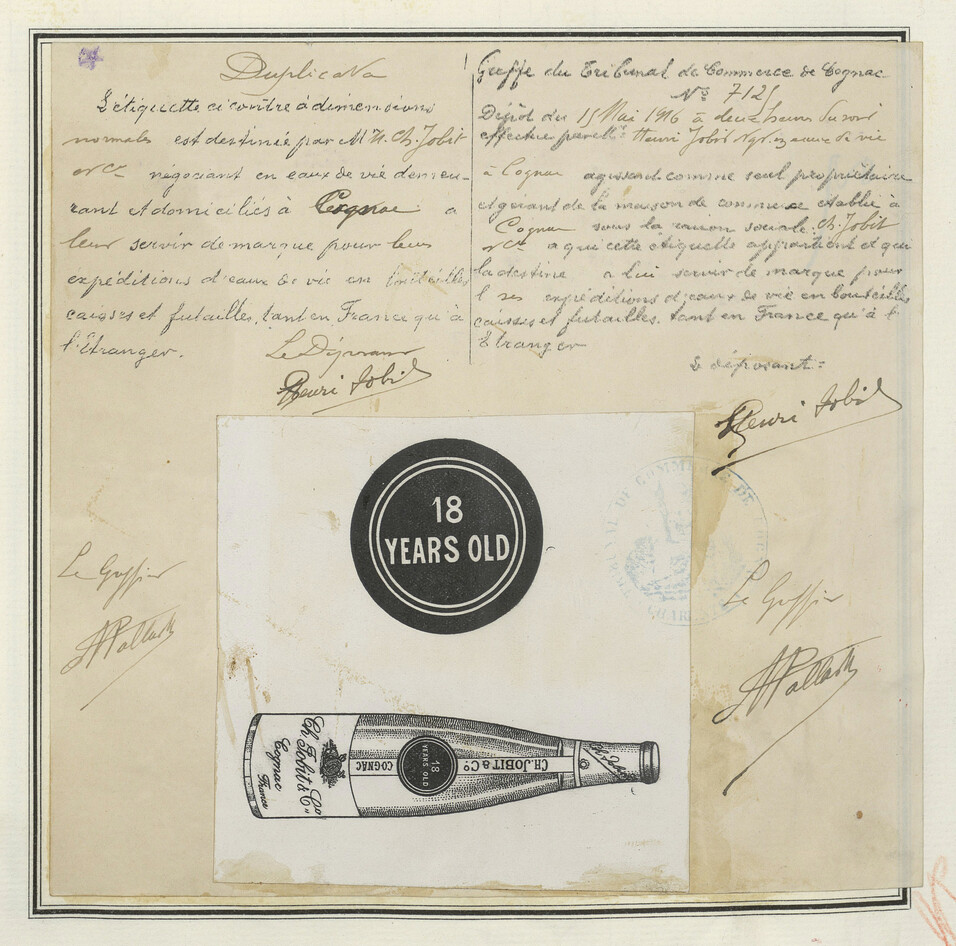 Duplicata
L'étiquette ci contre à dimensions
normales est destinée par M H. Ch. Jobit
& Cie négociant en eaux de vie demeu-
rant et domiciliés à Cognac a
leur servir de marque pour leurs
expéditions d'eaux de vie en bouteilles
caisses et futailles, tant en France qu'à
l'étranger.
Le Déposant
Henri Jobit
Greffe du Tribunal de Commerce de Cognac
No 712
Dépôt du 15 Mai 1916 à deux heures du soir
effectué par Henri Jobit eaux de vie
à Cognac agissant comme seul propriétaire
et gérant de la maison de commerce établie à
Cognac sous la raison sociale Ch. Jobit
& Cie a qui cette étiquette appartient et qui
la destine a lui servir de marque pour
ses expéditions d'eaux de vie en bouteilles
caisses et futailles. tant en France qu'à l'
Etranger
Le déposant:
Henri Jobit
18
YEARS OLD
TRIBUNAL DE COMMERCE DE
Le Greffier
Le Greffier
Ch. Jobit & Co
Cognac
France
COGNAC
18
YEARS OLD
CH. JOBIT & Co